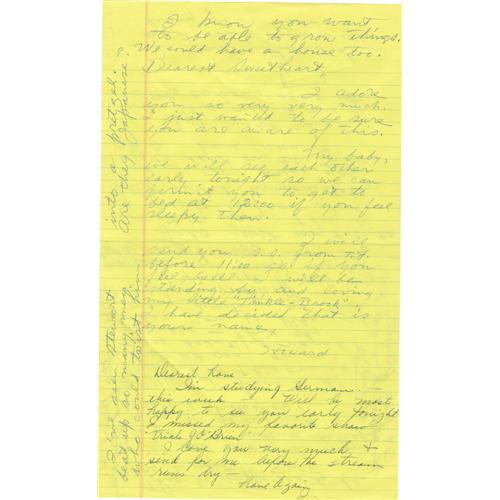 I know you want
to be able to grow things.
We could have a house too.
Dearest Sweetheart,
I adore
you so very very much.
I just wanted to be sure
you are aware of this.
My baby,
we will see each other
early tonight so we can
permit you to get to
bed at 12:00 if you feel
sleepy then.
I will
send you a.s. from T.F.
before 11:00 so if you
feel well I will be
standing by and loving
my little "Twinkle-Brock".
I have decided that is
yours name,
Howard
Dearest Love
I'm studying German -
this week Will be most
happy to see you early tonight
I missed my favorite show
"Trials of O'Brien"
I love you very much &
send for me before the stream
runs dry -
I've seen Stewart
beat up so many men
who could twist him
into a pretzel.
Are they Japanese?